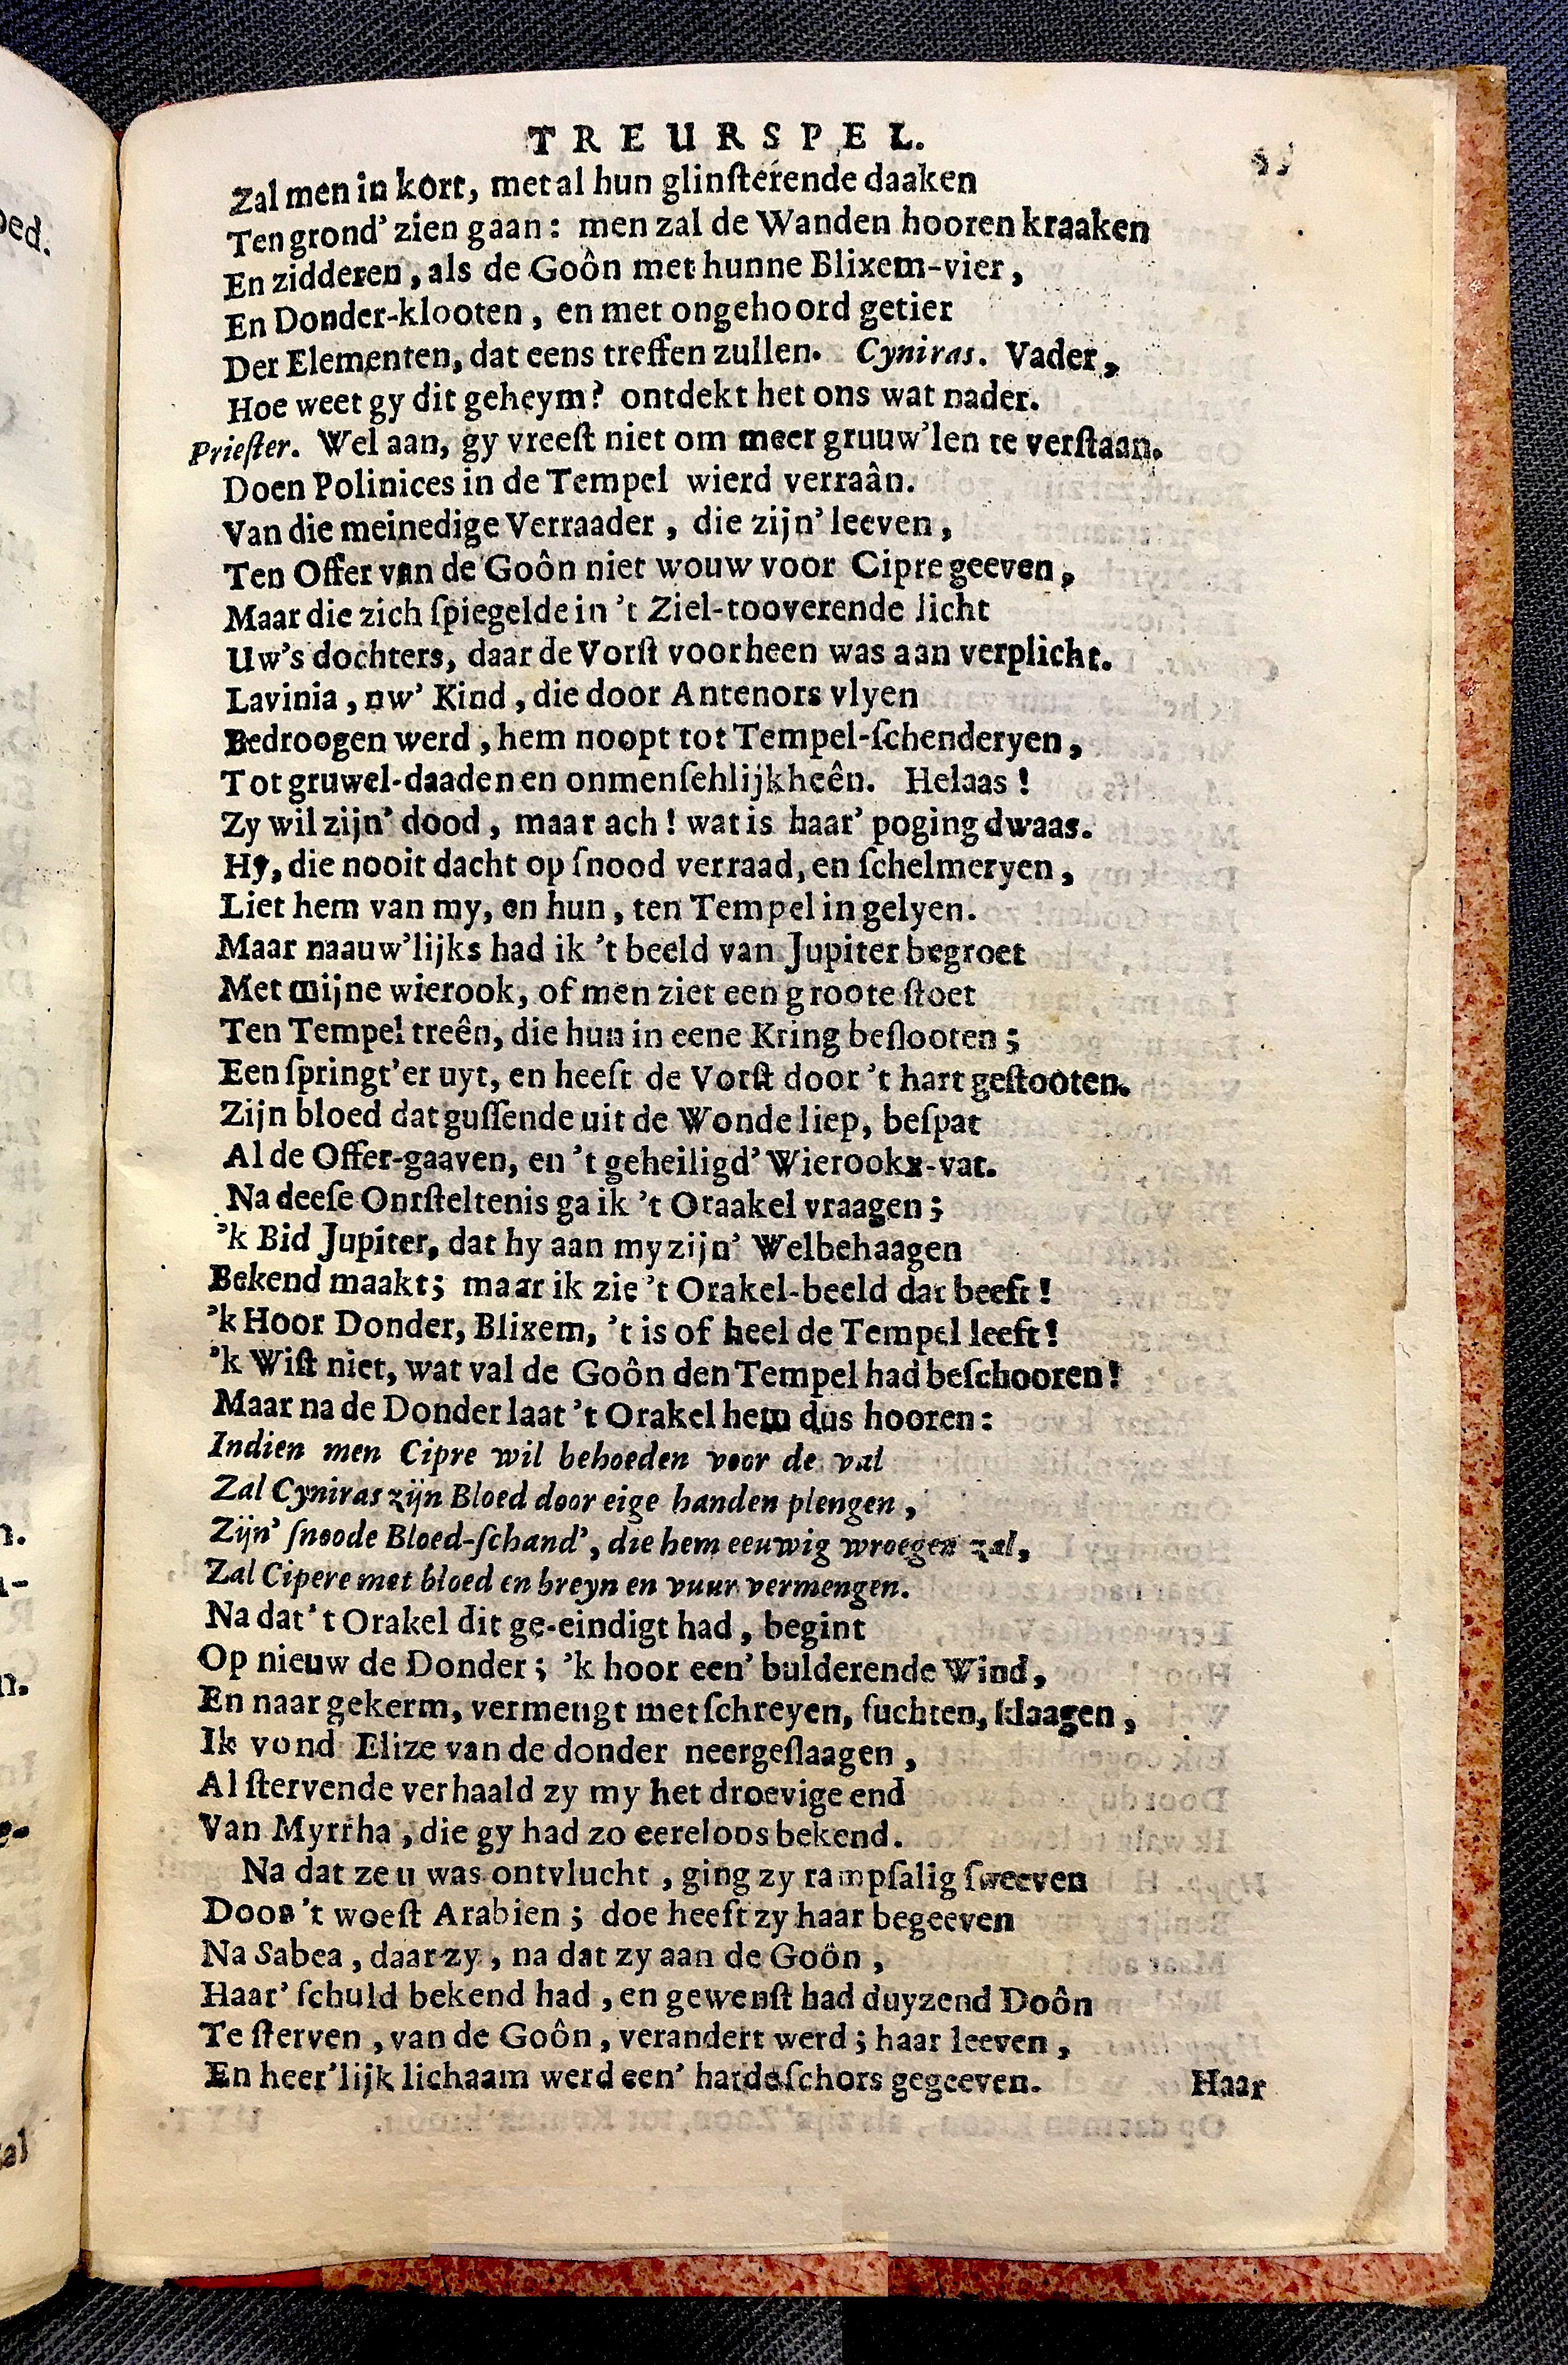 TREURSPEL.
Zal men in kort, met al hun glinſterende daaken
Ten grond' zien gaan: men zal de Wanden hooren kraaken
En zidderen, als de Goôn met hunne Blixem-vier,
En Donder-klooten, en met ongehoord getier
Der Elementen, dat eens treffen zullen. Cyniras. Vader,
Hoe weet gy dit geheym? ontdekt het ons wat nader.
Prieſter. Wel aan, gy vreeſt niet om meer gruuw'len te verſtaan.
Doen Polinices in de Tempel wierd verraân.
Van die meinedige Verraader, die zijn' leeven,
Ten Offer van de Goôn niet wouw voor Cipre geeven,
Maar die zich ſpiegelde in 't Ziel-tooverende licht
Uw's dochters, daar de Vorſt voorheen was aan verplicht.
Lavinia, uw' Kind, die door Antenors vlyen
Bedroogen werd, hem noopt tot Tempel-ſchenderyen,
Tot gruwel-daaden en onmenſehlijkheên. Helaas!
Zy wil zijn' dood, maar ach! wat is haar' poging dwaas.
Hy, die nooit dacht op ſnood verraad, en ſchelmeryen,
Liet hem van my, en hun, ten Tempel in gelyen.
Maar naauw'lijks had ik 't beeld van Jupiter begroet
Met mijne wierook, of men ziet een groote ſtoet
Ten Tempel treên, die hun in eene Kring beſlooten;
Een ſpringt'er uyt, en heeft de Vorſt door 't hart geſtooten.
Zijn bloed dat guſſende uit de Wonde liep, beſpat
Al de Offer-gaaven, en 't geheiligd' Wierookx-vat.
Na deeſe Ontſteltenis ga ik 't Oraakel vraagen;
'k Bid Jupiter, dat hy aan my zijn' Welbehaagen
Bekend maakt; maar ik zie 't Orakel-beeld dat beeft!
'k Hoor Donder, Blixem, 't is of heel de Tempel leeft!
'k Wiſt niet, wat val de Goôn den Tempel had beſchooren!
Maar na de Donder laat 't Orakel hem dus hooren:
Indien men Cipre wil behoeden voor de val
Zal Cyniras zijn Bloed door eige handen plengen,
Zijn' ſnoode Bloed-ſchand', die hem eeuwig wroegen zal,
Zal Cipere met bloed en breyn en vuur vermengen.
Na dat 't Orakel dit ge-eindigt had, begint
Op nieuw de Donder; 'k hoor een' bulderende Wind,
En naar gekerm, vermengt met ſchreyen, ſuchten, klaagen,
Ik vond Elize van de donder neergeſlaagen,
Al ſtervende verhaald zy my het droevige end
Van Myrrha, die gy had zo eereloos bekend.
Na dat ze u was ontvlucht, ging zy rampſalig ſweeven
Doon 't woeſt Arabien; doe heeft zy haar begeeven
Na Sabea, daar zy, na dat zy aan de Goôn,
Haar' ſchuld bekend had, en gewenſt had duyzend Doôn
Te ſterven, van de Goôn, verandert werd; haar leeven,
En heer'lijk lichaam werd een' harde ſchors gegeeven.
Haar